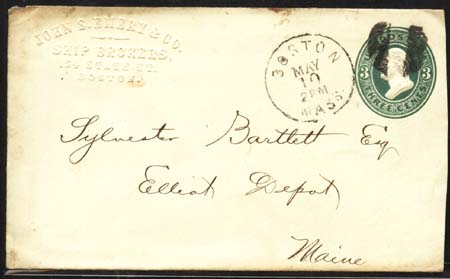 JOHN S. EMERY & CO.
SHIP BROKERS,
STATE ST.
BOSTON.
BOSTON
MAY
10
2 PM
MASS.
3 3
THREE CENTS
Sylvester Bartlett Esq
Elliot Depot
Maine